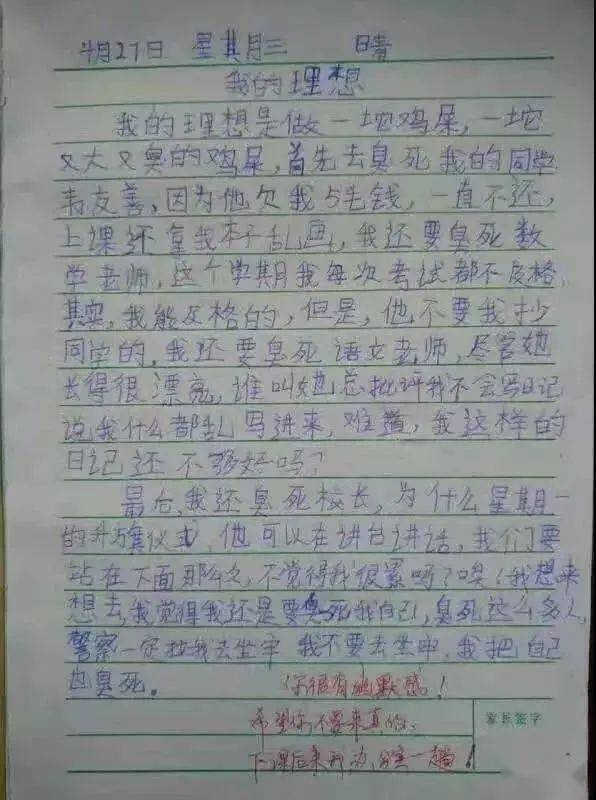 4月27日 星其月三 晴
我的理想
我的理想是做一坨鸡屎,一坨
又大又臭的鸡屎,首先去臭死我的同学
韦友善,因为他欠我5毛钱,一直不还,
上课还拿我本子乱画,我还要臭死数
学老师,这个学期我每次考试都不及格,
其实,我能及格的,但是,他不要我抄
同学的,我还要臭死语文老师,尽管她
长得很漂亮,谁叫她总批评我不会写日记
说我什么都乱写进来,难道,我这样的
日记还不够好吗?
最后,我还臭死校长,为什么星期一
的升旗仪式,他可以在讲台讲话,我们要
站在下面那么久,不觉得我很累吗?唉!我想来
想去,我觉得我还是要臭死我自己,臭死这么多人,
警察一定拉我去坐牢 我不要去坐牢,我把自己
也臭死。
你很有幽默感!
希望你不要来真的,
家长签字
下课后来我办公室一趟!